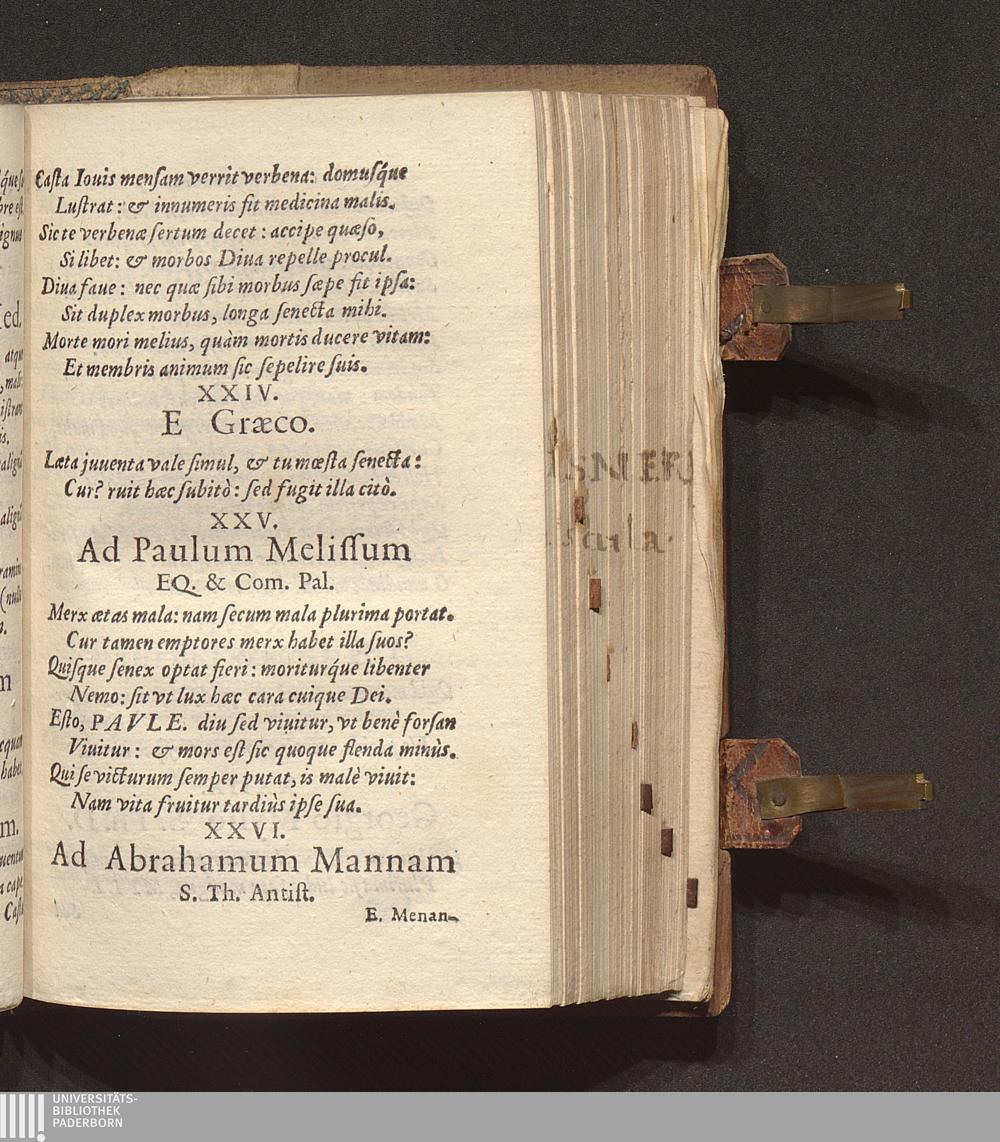 Casta Iouis mensam verrit verbena: domusq́ue
Lustrat: & innumeris fit medicina malis.
Sic te verbenæ sertum decet: accipe quæso,
Si libet: & morbos Diua repelle procul.
Diua faue: nec quæ sibi morbus sæpe fit ipsa:
Sit duplex morbus, longa senecta mihi.
Morte mori melius, quàm mortis ducere vitam:
Et membris animum sic sepelire suis.
XXIV.
E Græco.
Læta juuenta vale simul, & tu mœsta senecta:
Cur? ruit hæc subitò: sed fugit illa citò.
XXV.
Ad Paulum Melissum
EQ. & Com. Pal.
Merx ætas mala: nam secum mala plurima portat.
Cur tamen emptores merx habet illa suos?
Quisque senex optat fieri: moriturq́ue libenter
Nemo: sit vt lux hæc cara cuique Dei.
Esto, PAVLE. diu sed viuitur, vt benè forsan
Viuitur: & mors est sic quoque flenda minùs.
Qui se victurum semper putat, is malè viuit:
Nam vita fruitur tardiùs ipse sua.
XXVI.
Ad Abrahamum Mannam
S. Th. Antist.
E. Menan-
UNIVERSITÄTS-
BIBLIOTHEK
PADERBORN